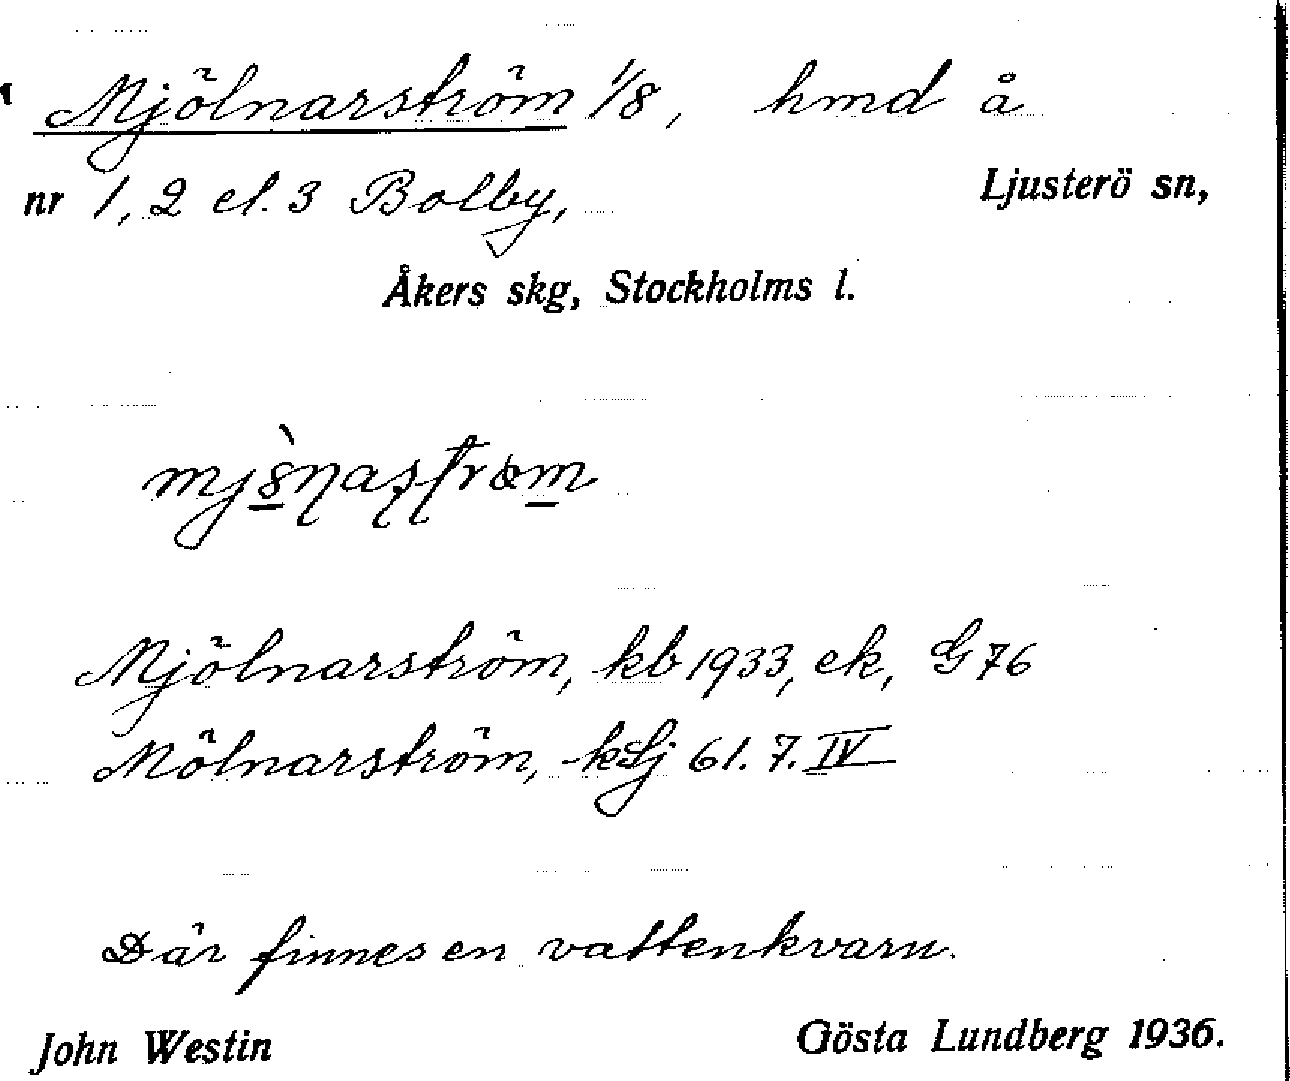 Mjölnarström 1/8, hmd å
nr 1, 2 el. 3 Bolby, Ljusterö sn,
Åkers skg, Stockholms l.
Mjölnarström, kb 1933, ek, G 76
Mölnarström, kLj 61. 7. IV
Där finnes en vattenkvarn.
John Westin Gösta Lundberg 1936.